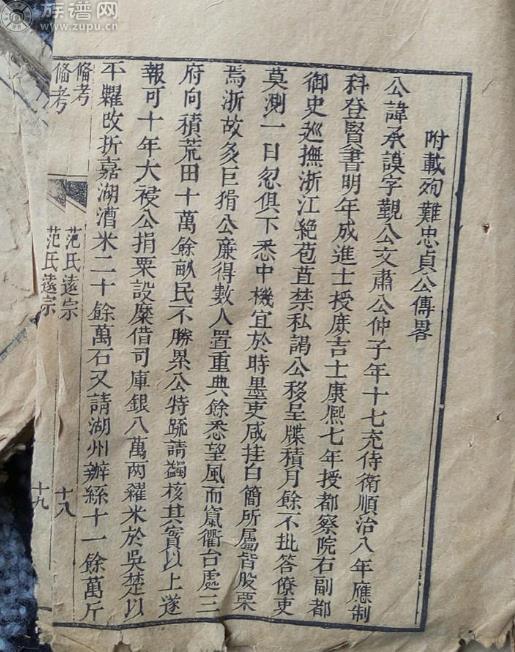 附載殉難忠貞公傳畧
公諱承謨字覲公文肅公仲子年十七充侍衛順治八年應制
科登賢書明年成進士授庶吉士康熙七年授都察院右副都
御史巡撫浙江絶苞苴禁私謁公移呈牒積月餘不批答僚吏
莫測一日忽俱下悉中機宜於時墨吏咸挂白簡所屬皆股栗
焉浙故多巨猾公廉得數人置重典餘悉望風而竄衢台處三
府向積荒田十萬餘畝民不勝累公特疏請蠲核其實以上遂
報可十年大祲公捐粟設糜借司庫銀八萬兩糴米於吳楚以
平糶改折嘉湖漕米二十餘萬石又請湖州辦絲十一餘萬斤
備考 范氏遠宗 十八
備考 范氏遠宗 十九
族谱网
www.zupu.cn